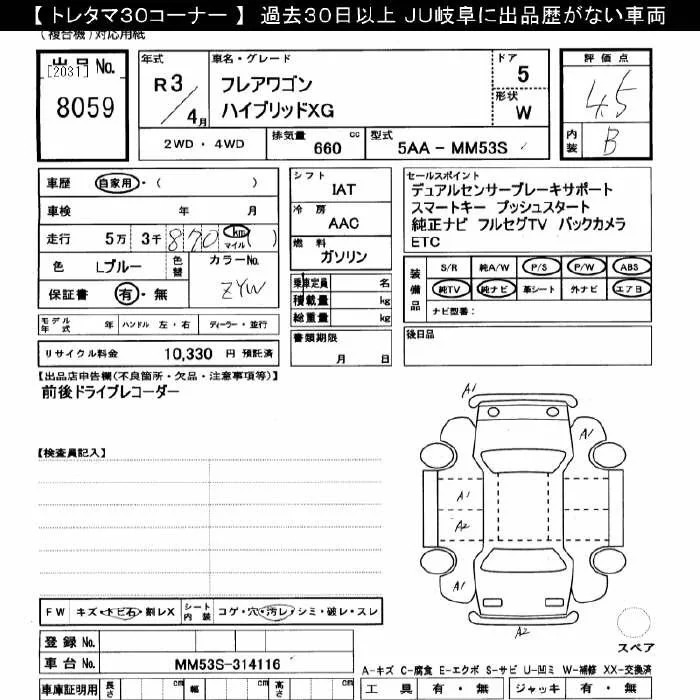 【 トレタマ30コーナー 】 過去30日以上 JU岐阜に出品歴がない車両
(複合機)対応用紙
出品 No.
[2031]
8059
年式
R 3 / 4 月
車名・グレード
フレアワゴン
ハイブリッドXG
ドア
5
形状
W
2WD ・ 4WD
排気量 660 cc
型式 5AA - MM53S
評価点
4.5
内装 B
車歴 自家用・( )
車検 年 月
走行 5万 3千 870 km マイル ( )
色 Lブルー 色替 カラーNo. ZYW
保証書 有・無
モデル年式 年 ハンドル 左・右 ディーラー・並行
リサイクル料金 10,330 円 預託済
シフト
IAT
冷房
AAC
燃料
ガソリン
乗車定員 名
積載量 kg
総重量 kg
書類期限
月 日
セールスポイント
デュアルセンサーブレーキサポート
スマートキー プッシュスタート
純正ナビ フルセグTV バックカメラ
ETC
装備品
S/R 純A/W P/S P/W ABS
純TV 純ナビ 革シート 外ナビ エアB
ナビ型番:
後日品
【出品店申告欄(不良箇所・欠品・注意事項等)】
前後ドライブレコーダー
【検査員記入】
A1
A1
A1
A2
A1
A2
スペア
FW キズ・トビ石・割レX シート内装 コゲ・穴・汚レ・シミ・破レ・スレ
登録 No.
車台 No. MM53S-314116
車庫証明用 長さ cm 幅 cm 高さ cm
A-キズ C-腐食 E-エクボ S-サビ U-凹ミ W-補修 XX-交換済
工具 有・無 ジャッキ 有・無